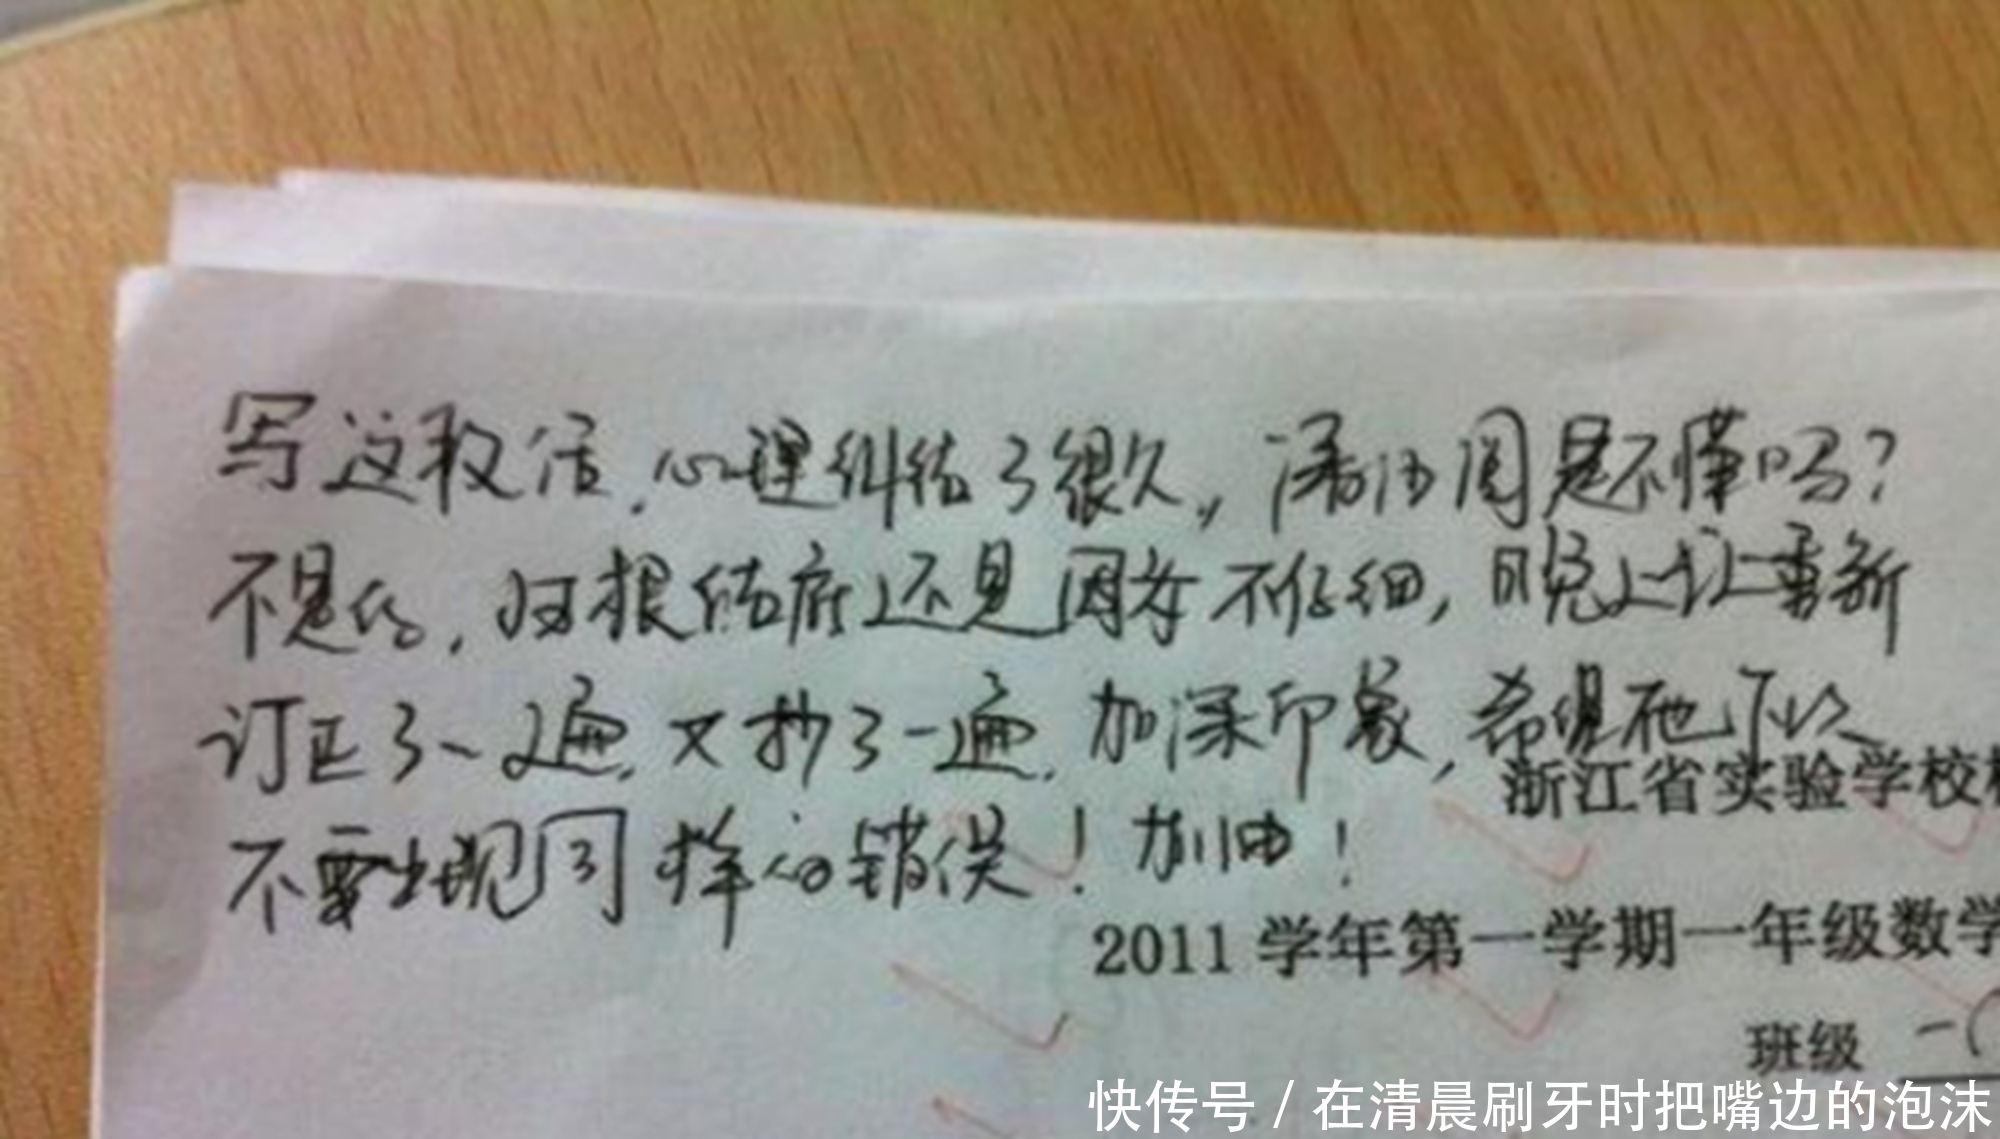 写这段话,心理纠结了很久,,潘沛闻是不懂吗?
不是的,归根结底还是因为不仔细,晚上我让重新
订正了一遍,又抄了一遍,加深印象,希望他可以
不要出现同样的错误!加油!
浙江省实验学校
2011 学年第一学期一年级数学
班级 一(
快传号 / 在清晨刷牙时把嘴边的泡沫